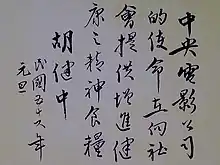 中央電影公司
的使命在向社
會提供增進健
康之精神食糧
胡健中
民國五十六年
元旦